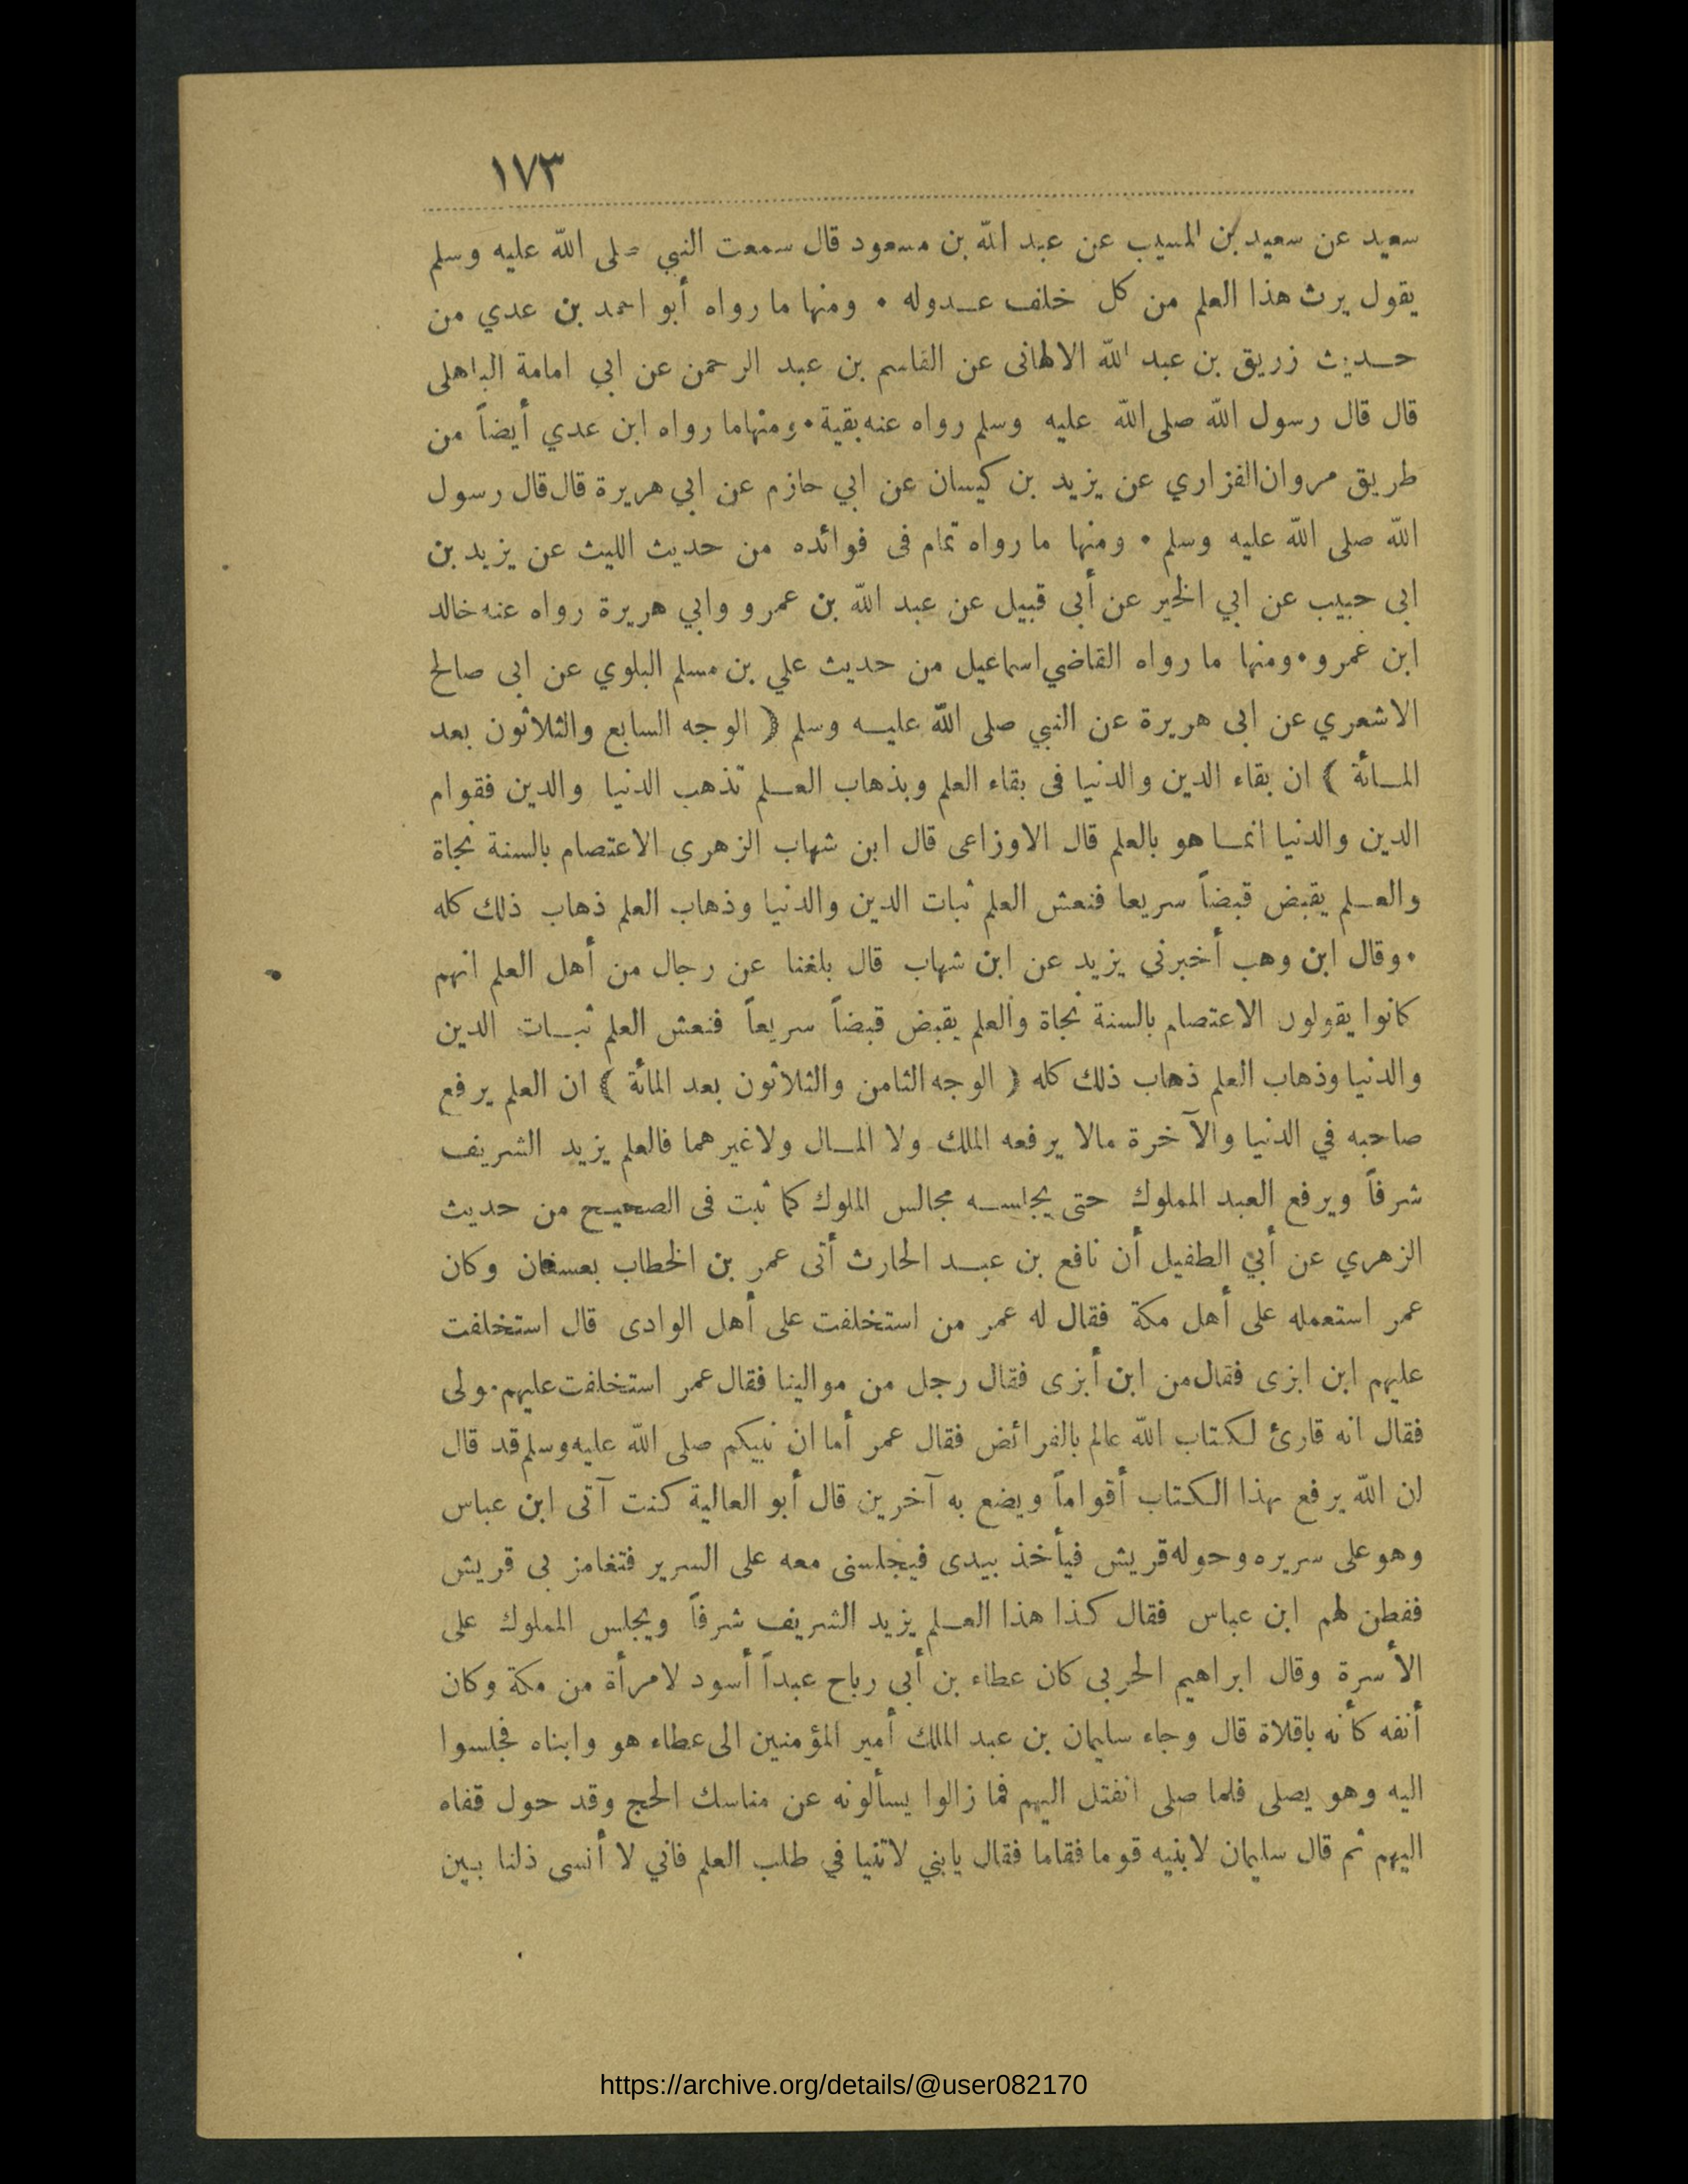 ١٧٣
سعيد عن سعيد بن المسيب عن عبد الله بن مسعود قال سمعت النبي صلى الله عليه وسلم
يقول يرث هذا العلم من كل خلف عـدوله • ومنها ما رواه أبو احمد بن عدي من
حـديث زريق بن عبد الله الالهانى عن القاسم بن عبد الرحمن عن ابي امامة الباهلى
قال قال رسول الله صلى الله عليه وسلم رواه عنه بقية • ومنها ما رواه ابن عدي أيضاً من
طريق مروان الفزاري عن يزيد بن كيسان عن ابي حازم عن ابي هريرة قال قال رسول
الله صلى الله عليه وسلم • ومنها ما رواه تمام فى فوائده من حديث الليث عن يزيد بن
ابى حبيب عن ابي الخير عن أبى قبيل عن عبد الله بن عمرو وابي هريرة رواه عنه خالد
ابن عمرو • ومنها ما رواه القاضي اسماعيل من حديث علي بن مسلم البلوي عن ابى صالح
الاشعري عن ابى هريرة عن النبي صلى الله عليـه وسلم ﴿ الوجه السابع والثلاثون بعد
المـائة ﴾ ان بقاء الدين والدنيا فى بقاء العلم وبذهاب العـلم تذهب الدنيا والدين فقوام
الدين والدنيا انمـا هو بالعلم قال الاوزاعى قال ابن شهاب الزهرى الاعتصام بالسنة نجاة
والعـلم يقبض قبضاً سريعا فنعش العلم ثبات الدين والدنيا وذهاب العلم ذهاب ذلك كله
• وقال ابن وهب أخبرني يزيد عن ابن شهاب قال بلغنا عن رجال من أهل العلم انهم
كانوا يقولون الاعتصام بالسنة نجاة والعلم يقبض قبضاً سريعاً فنعش العلم ثبـات الدين
والدنيا وذهاب العلم ذهاب ذلك كله ﴿ الوجه الثامن والثلاثون بعد المائة ﴾ ان العلم يرفع
صاحبه في الدنيا والآخرة مالا يرفعه الملك ولا المـال ولا غيرهما فالعلم يزيد الشريف
شرفاً ويرفع العبد المملوك حتى يجلسـه مجالس الملوك كما ثبت فى الصحيح من حديث
الزهري عن أبي الطفيل أن نافع بن عبـد الحارث أتى عمر بن الخطاب بعسفان وكان
عمر استعمله على أهل مكة فقال له عمر من استخلفت على أهل الوادى قال استخلفت
عليهم ابن ابزى فقال من ابن أبزى فقال رجل من موالينا فقال عمر استخلفت عليهم مولى
فقال انه قارئ لكتاب الله عالم بالفرائض فقال عمر أما ان نبيكم صلى الله عليه وسلم قد قال
ان الله يرفع بهذا الكتاب أقواماً ويضع به آخرين قال أبو العالية كنت آتى ابن عباس
وهو على سريره وحوله قريش فيأخذ بيدى فيجلسنى معه على السرير فتغامز بى قريش
ففطن لهم ابن عباس فقال كذا هذا العـلم يزيد الشريف شرفاً ويجلس المملوك على
الأسرة وقال ابراهيم الحربى كان عطاء بن أبى رباح عبداً أسود لامرأة من مكة وكان
أنفه كأنه باقلاة قال وجاء سليمان بن عبد الملك أمير المؤمنين الى عطاء هو وابناه فجلسوا
اليه وهو يصلى فلما صلى انفتل اليهم فما زالوا يسألونه عن مناسك الحج وقد حول قفاه
اليهم ثم قال سليمان لابنيه قوما فقاما فقال يابني لاتنيا في طلب العلم فاني لا أنسى ذلنا بين
https://archive.org/details/@user082170